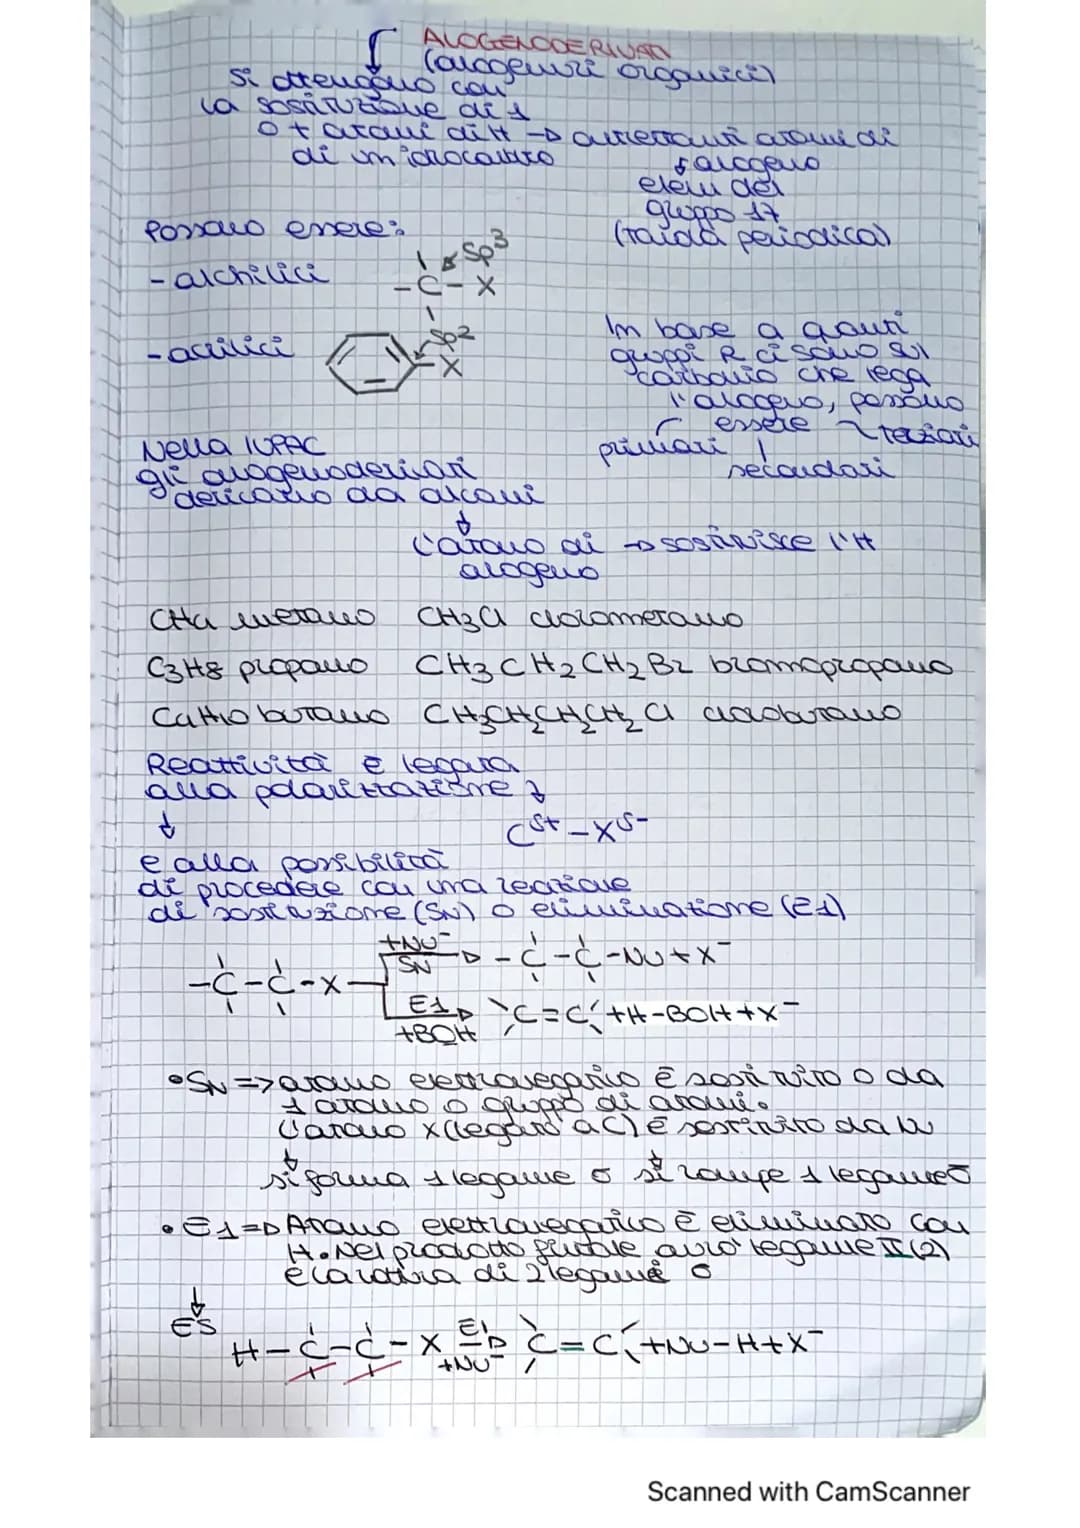 ALOGENODERIVATI
(alogenuri organici)
Si ottengono con
la sostituzione di 1
o + atomi di H → altrettanti atomi di
di un idrocarburo
↓ alogeno
elem del
gruppo 17
(tavola periodica)
Possono essere:
- alchilici
-C-X
Sp3
- arilici
Sp2
X
In base a quanti
gruppi R ci sono sul
carbonio che lega
l'alogeno, possono
essere
primari
secondari
terziari
Nella IUPAC
gli alogenoderivati
derivano da alcani
↓
L'atomo di → sostituisce l'H
alogeno
CH4 metano CH3Cl clorometano
C3H8 propano CH3CH2CH2Br bromopropano
C4H10 butano CH3CH2CH2CH2Cl clorobutano
Reattività è legata
alla polarizzazione
↓
Cδ+ - Xδ-
e alla possibilità
di procedere con una reazione
di sostituzione (SN) o eliminazione (E1)
-C-C-X
+Nu-
SN
-C-C-Nu+X-
E1
+BOH
C=C+H-BOH+X-
• SN => atomo elettronegativo è sostituito o da
1 atomo o gruppo di atomi.
L'atomo X (legato a C) è sostituito da Nu
↓
si forma 1 legame σ si rompe 1 legame σ
• E1 => Atomo elettronegativo è eliminato con
H. Nel prodotto finale avrò legame π (2)
e la rottura di 2 legami σ
↓
ES
H-C-C-X E1 C=C+Nu-H+X-
+Nu-
Scanned with CamScanner